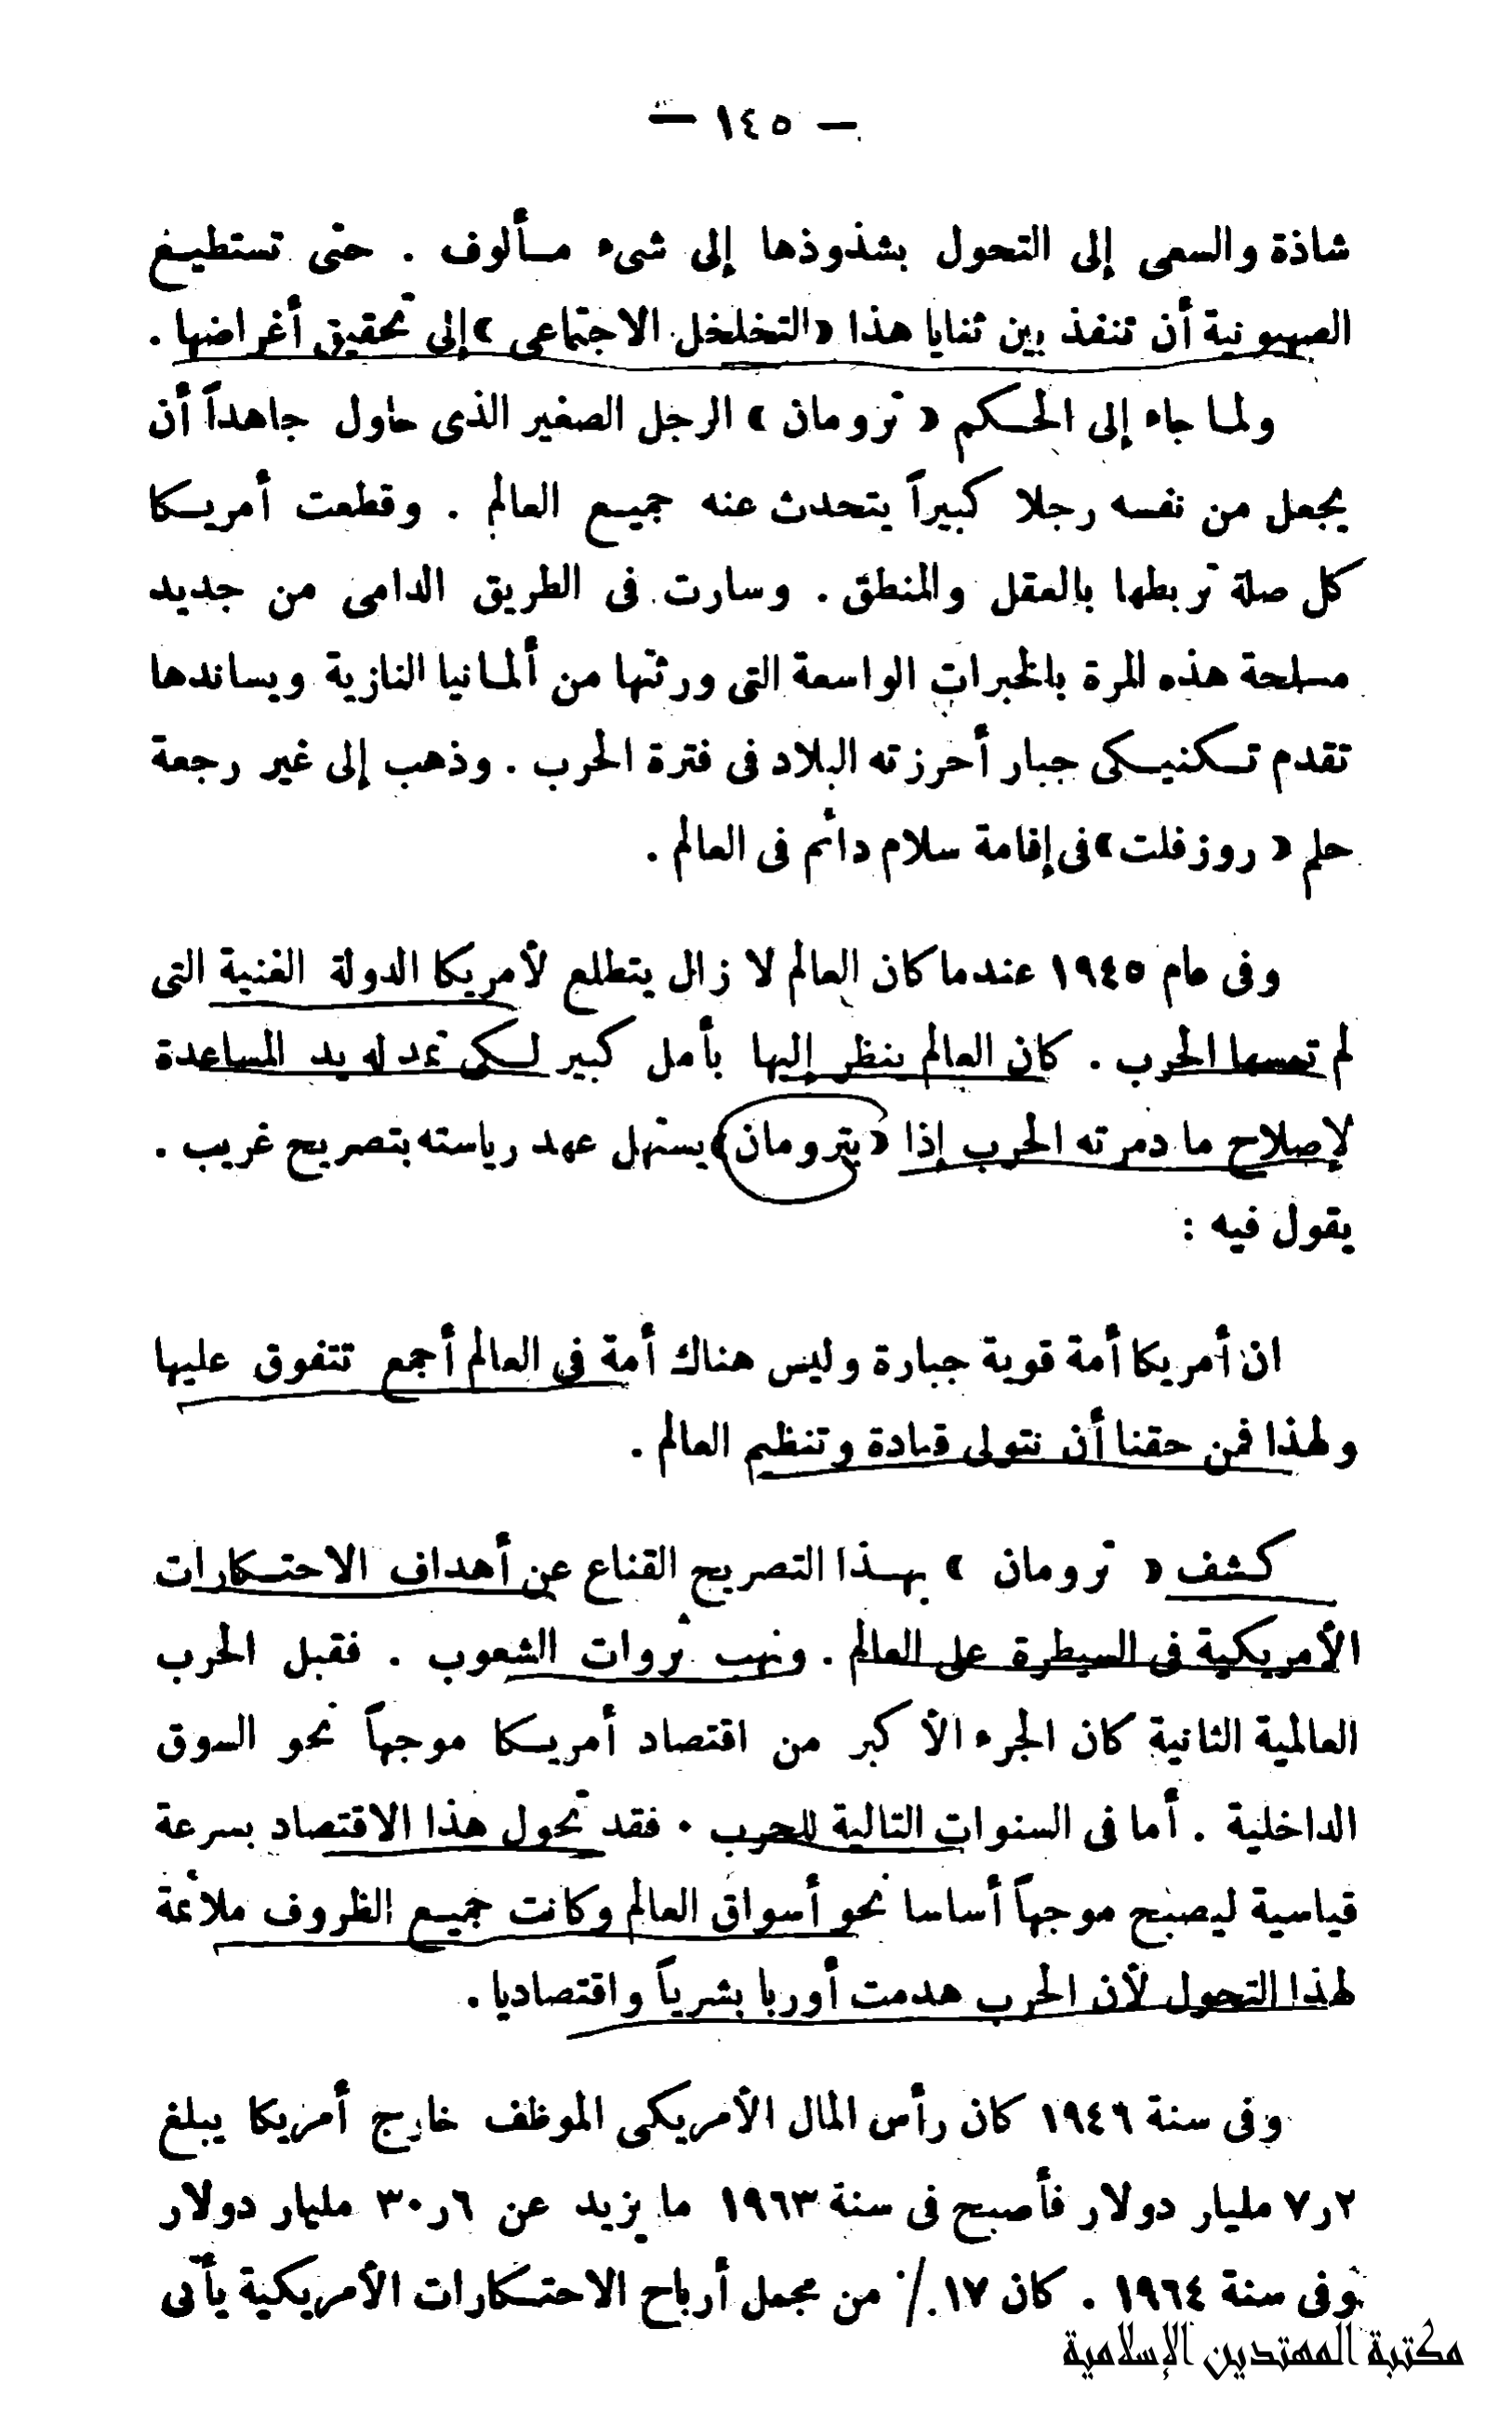 — ١٤٥ —
شاذة والسعى إلى التحول بشذوذها إلى شىء مـألوف . حتى تستطيـع
الصهيونية أن تنفذ بين ثنايا هذا «التخلخل الاجتماعى» إلى تحقيق أغراضها .
ولما جاء إلى الحـكم « ترومان » الرجل الصغير الذى حاول جاهداً أن
يجعل من نفسه رجلا كبيراً يتحدث عنه جميـع العالم . وقطعت أمريـكا
كل صلة تربطها بالعقل والمنطق . وسارت فى الطريق الدامى من جديد
مسلحة هذه المرة بالخبرات الواسعة التى ورثتها من ألمـانيا النازية ويساندها
تقدم تـكنيـكى جبار أحرزته البلاد فى فترة الحرب . وذهب إلى غير رجعة
حلم « روزفلت» فى إقامة سلام دائم فى العالم .
وفى عام ١٩٤٥ عندما كان العالم لا زال يتطلع لأمريكا الدولة الغنية التى
لم تمسها الحرب . كان العالم ينظر إليها بأمل كبير لـكى تمد له يد المساعدة
لإصلاح ما دمرته الحرب إذا «بترومان» يستهل عهد رياسته بتصريح غريب .
يقول فيه :
ان أمريكا أمة قوية جبارة وليس هناك أمة فى العالم أجمع تتفوق عليها
ولهذا فمن حقنا أن نتولى قيادة وتنظيم العالم .
كشف « ترومان » بهـذا التصريح القناع عن أهداف الاحتـكارات
الأمريكية فى السيطرة على العالم . ونهب ثروات الشعوب . فقبل الحرب
العالمية الثانية كان الجزء الأكبر من اقتصاد أمريـكا موجهاً نحو السوق
الداخلية . أما فى السنوات التالية للحرب . فقد تحول هذا الاقتصاد بسرعة
قياسية ليصبح موجهاً أساسا نحو أسواق العالم وكانت جميـع الظروف ملائمة
لهذا التحول لأن الحرب هدمت أوربا بشرياً واقتصاديا .
وفى سنة ١٩٤٦ كان رأس المال الأمريكى الموظف خارج أمريكا يبلغ
٧٫٢ مليار دولار فأصبح فى سنة ١٩٦٣ ما يزيد عن ٣٠٫٦ مليار دولار
وفى سنة ١٩٦٤ . كان ١٧ ٪ من مجمل أرباح الاحتـكارات الأمريكية يأتى
مكتبة المهتدين الإسلامية